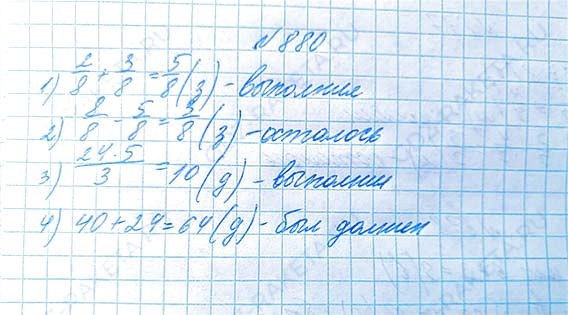 №880
1) 2/8 + 3/8 = 5/8 (з) - выполнил
2) 8/8 - 5/8 = 3/8 (з) - осталось
3) 24·5/3 = 10 (д) - выполнил
4) 40+24=64 (д) - был должен